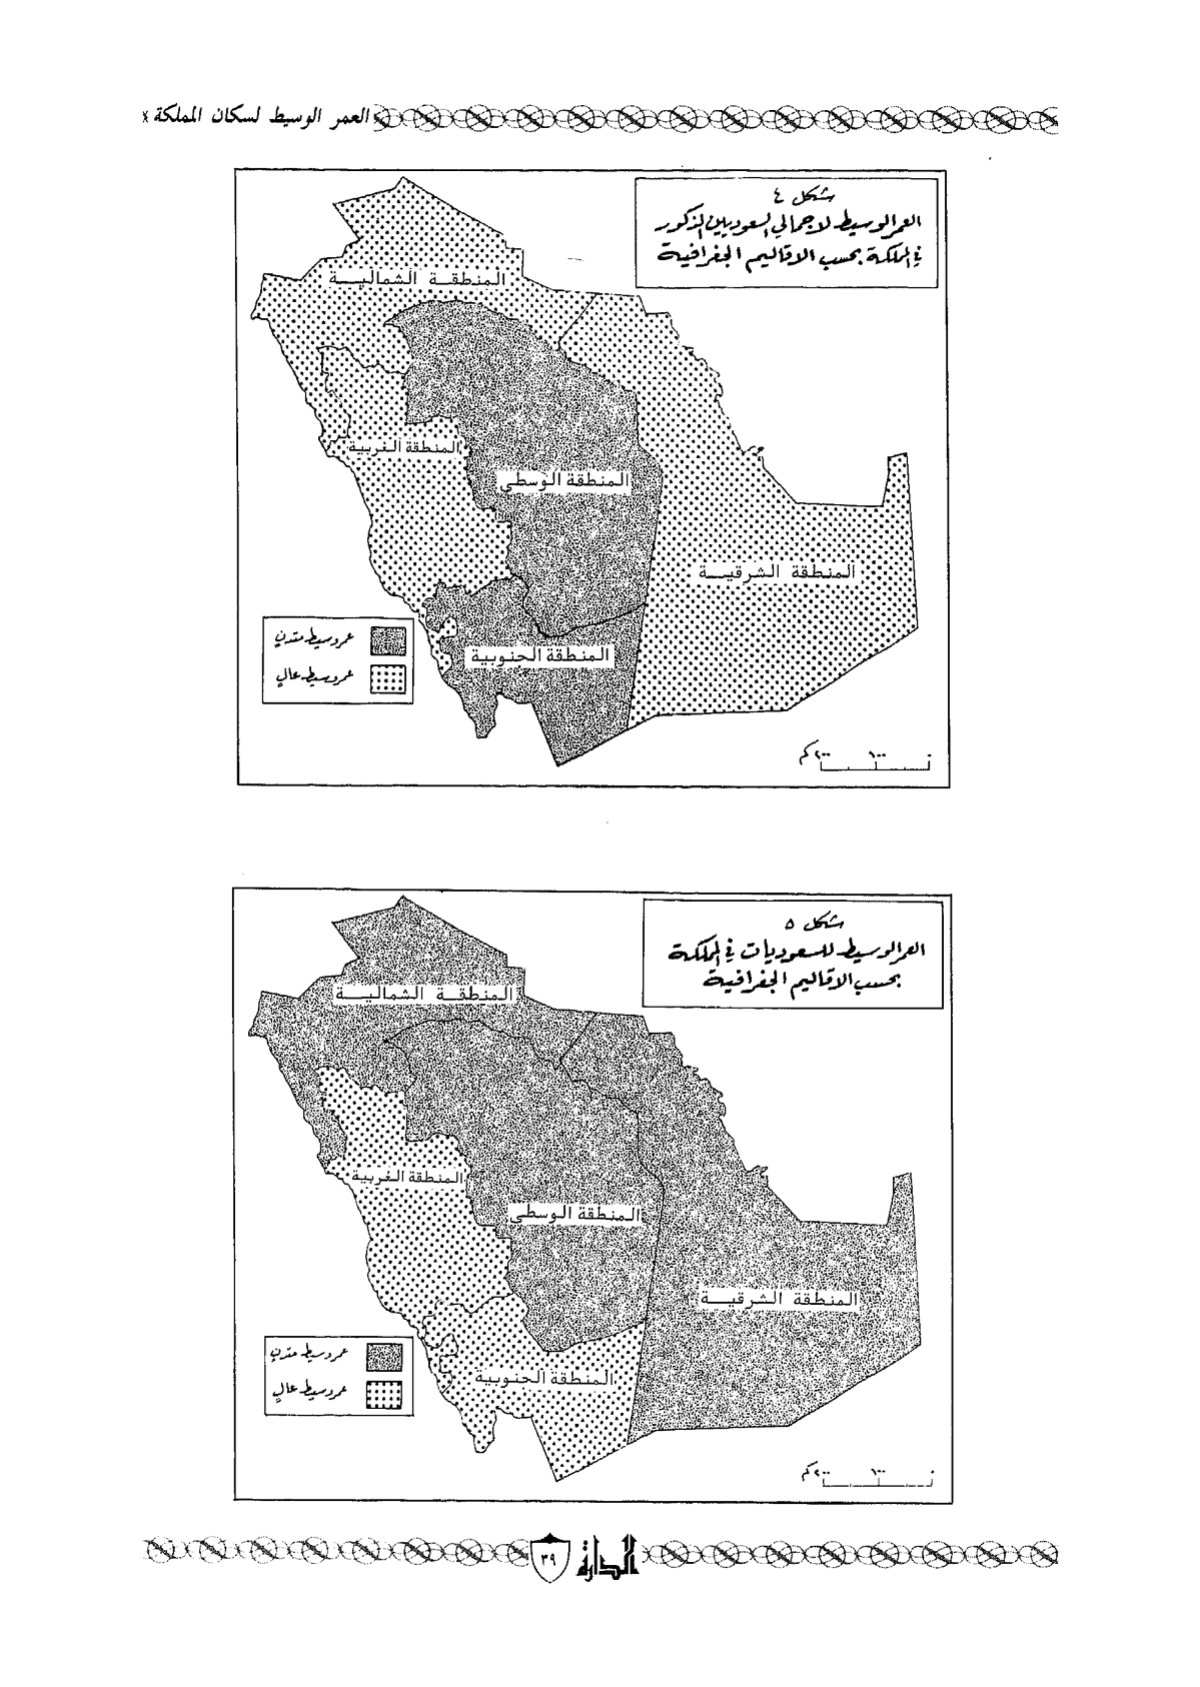 العمر الوسيط لسكان المملكة
شكل ٤
العمر الوسيط لاجمالي السعوديين الذكور
في المملكة بحسب الاقاليم الجغرافية
المنطقة الشمالية
المنطقة الغربية
المنطقة الوسطى
المنطقة الشرقية
المنطقة الجنوبية
عمر وسيط متدن
عمر وسيط عالٍ
٠ ١٠٠ ٢٠٠ كم
شكل ٥
العمر الوسيط للسعوديات في المملكة
بحسب الاقاليم الجغرافية
المنطقة الشمالية
المنطقة الغربية
المنطقة الوسطى
المنطقة الشرقية
المنطقة الجنوبية
عمر وسيط متدن
عمر وسيط عالٍ
٠ ١٠٠ ٢٠٠ كم
الدارة ٣٩